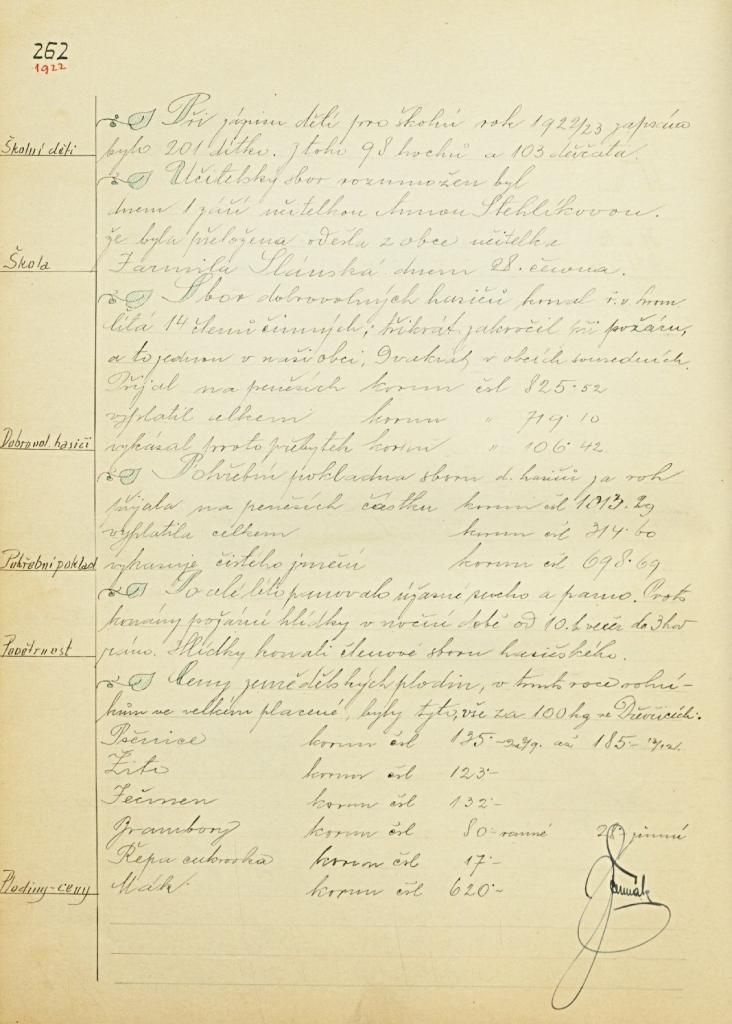 262
1922
Při zápisu dětí pro školní rok 1922/23 zapsáno
Školní děti
bylo 201 dítko. z toho 98 hochů a 103 děvčata.
Učitelský sbor rozmnožen byl
dnem 1 září učitelkou Annou Stehlíkovou.
že byla přeložena odešla z obce učitelka
Škola
Jarmila Slánská dnem 28. června.
Sbor dobrovolných hasičů, konal r. v. tom
14 členů činných; třikrát zakročil při požáru,
a to jednou v naší obci, Dvakrát v obcích sousedních.
Přijal na penězích korun čsl 825·52
vyplatil celkem korun " 719·10
Dobrovol. hasiči
vykázal proto přebytek korun " 106·42
Pohřební pokladna sboru d. hasičů za rok
přijala na penězích částku korun čsl 1013.29
vyplatila celkem korun čsl 314·60
Pohřební poklad
vykazuje čistého jmění korun čsl 698·69
Po celé léto panovalo úžasné sucho a parno. Proto
konány požární hlídky v noční době od 10. h večer do 3 hod
Povětrnost
ráno. Hlídky konali členové sboru hasičského.
Ceny zemědělských plodin, v tomto roce rolní-
kům ve velkém placené, byly tyto, vše za 100 kg ve Dřevčicích:
Pšenice korun čsl 135·- až 185·-
Žito korun čsl 123·-
Ječmen korun čsl 132·-
Brambory korun čsl 80·- ranné 28·- zimní
Řepa cukrovka korun čsl 17·-
Plodiny-ceny
Mák korun čsl 620·-